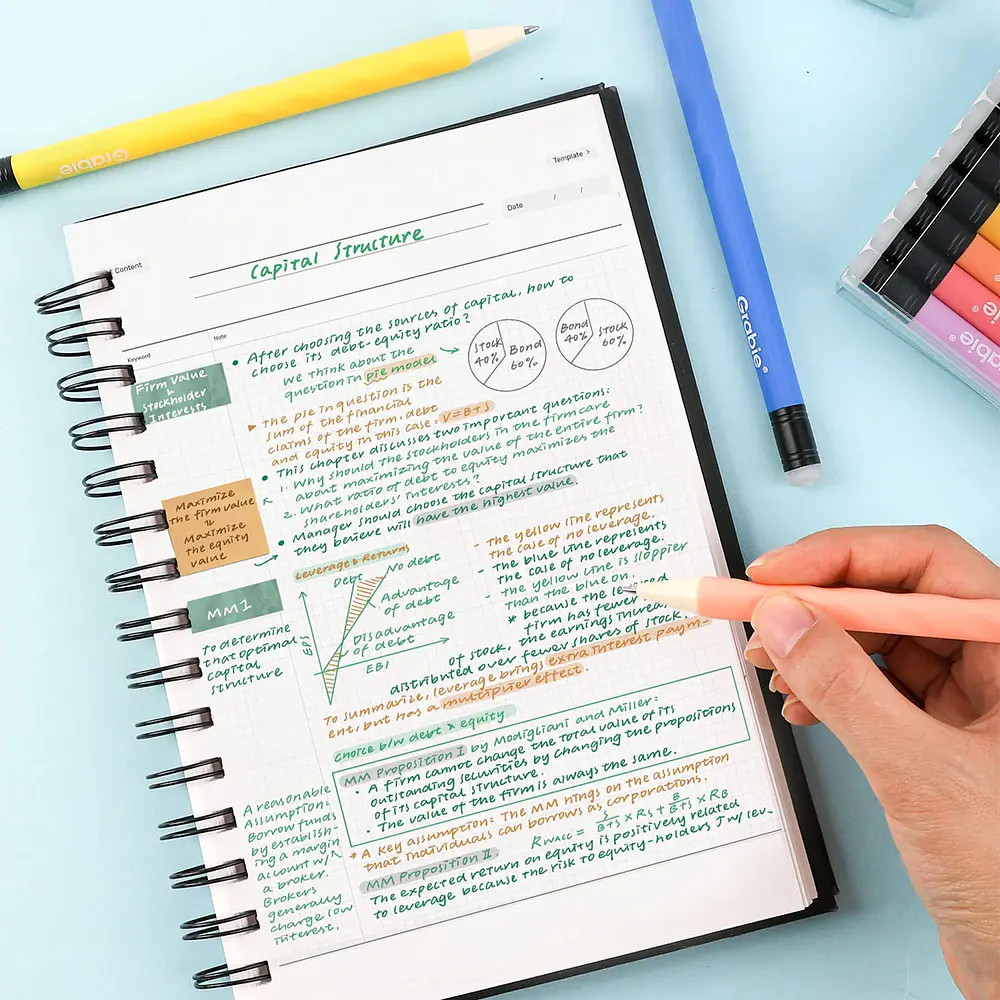 Grabie
Grabie
Template >
Date / /
Content
Capital Structure
Keyword
Note
Firm Value
&
Stockholder
Interests
• After choosing the sources of capital, how to
choose its debt-equity ratio?
We think about the
question in pie model
Stock
40%
Bond
60%
Bond
40%
Stock
60%
▸ The pie in question is the
sum of the financial
claims of the firm, debt
and equity in this case: V=B+S
• This chapter discusses two important questions:
1. Why should the stockholders in the firm care
about maximizing the value of the entire firm?
2. What ratio of debt to equity maximizes the
shareholders' interests?
• Manager should choose the capital structure that
they believe will have the highest value.
Maximize
the firm value
Maximize
the equity
value
Leverage & Returns
Debt
No debt
Advantage
of debt
Disadvantage
of debt
EPS
EBI
- the yellow line represents
the case of no leverage.
- the blue line represents
the case of no leverage.
- the yellow line is sloppier
than the blue on.
* because the
firm has fewer
the earnings
of stock,
distributed over fewer shares of stock.
To summarize, leverage brings extra interest paym-
ent, but has a multiplier effect.
MM1
To determine
that optimal
capital
structure
Choice b/w debt & equity
MM Proposition I by Modigliani and Miller:
• A firm cannot change the total value of its
outstanding securities by changing the propositions
of its capital structure.
• The value of the firm is always the same.
* A key assumption: The MM rings on the assumption
that individuals can borrows as corporations.
A reasonable
Assumption:
Borrow funds
by establish-
ing a margin
account w/
a broker.
Brokers
generally
charge low
interest.
MM Proposition II.
RWACC = S/B+S × RS + B/B+S × RB
The expected return on equity is positively related
to leverage because the risk to equity-holders ↑ w/ lev-
Grabie